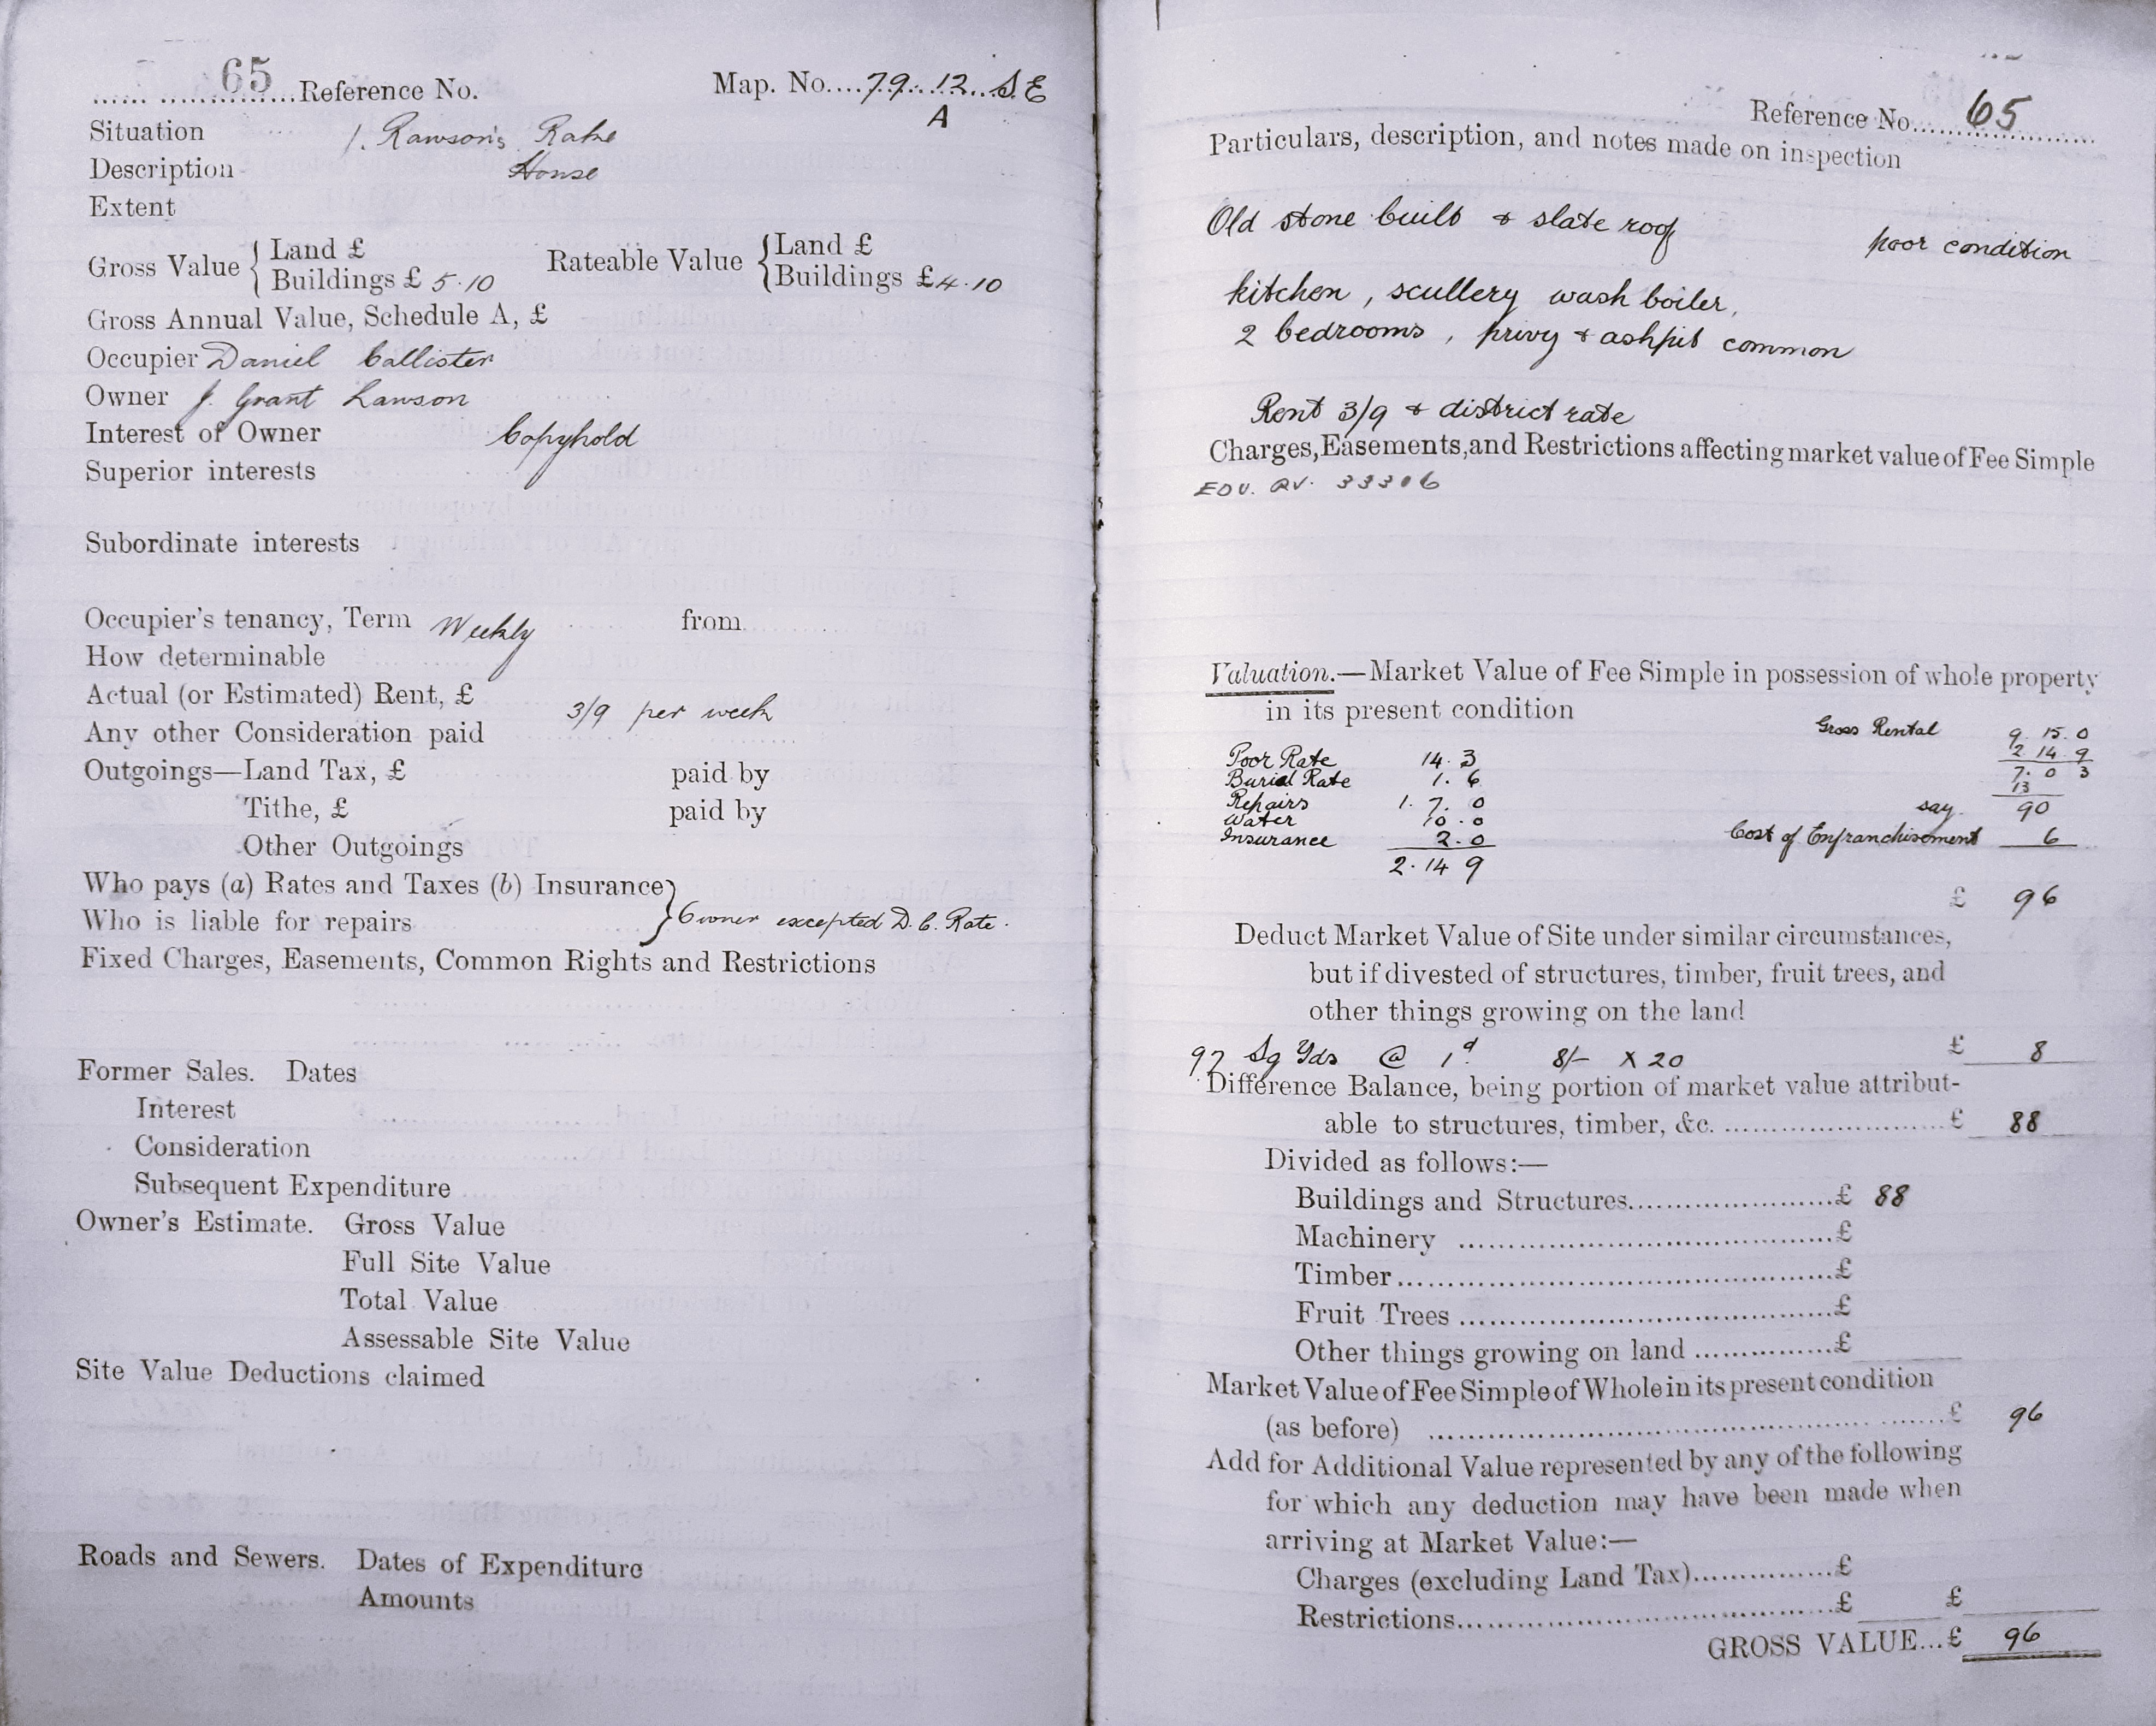 65
...... ...............Reference No.
Map. No....79..12..S.E
A
Situation 1. Rawson's Rake
Description House
Extent
Gross Value { Land £
Buildings £ 5.10
Rateable Value { Land £
Buildings £4.10
Gross Annual Value, Schedule A, £
Occupier Daniel Callister
Owner J. Grant Lawson
Interest of Owner Copyhold
Superior interests
Subordinate interests
Occupier's tenancy, Term Weekly from
How determinable
Actual (or Estimated) Rent, £ 3/9 per week
Any other Consideration paid
Outgoings—Land Tax, £ paid by
Tithe, £ paid by
Other Outgoings
Who pays (a) Rates and Taxes (b) Insurance
Who is liable for repairs } Owner excepted D.C. Rate.
Fixed Charges, Easements, Common Rights and Restrictions
Former Sales. Dates
Interest
Consideration
Subsequent Expenditure
Owner's Estimate. Gross Value
Full Site Value
Total Value
Assessable Site Value
Site Value Deductions claimed
Roads and Sewers. Dates of Expenditure
Amounts
Reference No. 65
Particulars, description, and notes made on inspection
Old stone built & slate roof
poor condition
kitchen, scullery wash boiler,
2 bedrooms, privy & ashpit common
Rent 3/9 & district rate
Charges, Easements, and Restrictions affecting market value of Fee Simple
33306
Valuation.—Market Value of Fee Simple in possession of whole property
in its present condition
Gross Rental 9. 15. 0
2 14 9
7. 0 3
13
say 90
Cost of Enfranchisement 6
Poor Rate 14. 3
Burial Rate 1. 6
Repairs 1. 7. 0
Water 10. 0
Insurance 2. 0
2. 14 9
£ 96
Deduct Market Value of Site under similar circumstances,
but if divested of structures, timber, fruit trees, and
other things growing on the land
97 Sq Yds @ 1d 8/- X 20 £ 8
Difference Balance, being portion of market value attribut-
able to structures, timber, &c. ........................£ 88
Divided as follows:—
Buildings and Structures......................£ 88
Machinery ......................................£
Timber............................................£
Fruit Trees ......................................£
Other things growing on land ...............£
Market Value of Fee Simple of Whole in its present condition
(as before) ..................................................£ 96
Add for Additional Value represented by any of the following
for which any deduction may have been made when
arriving at Market Value:—
Charges (excluding Land Tax)...............£
Restrictions......................................£ £
GROSS VALUE...£ 96